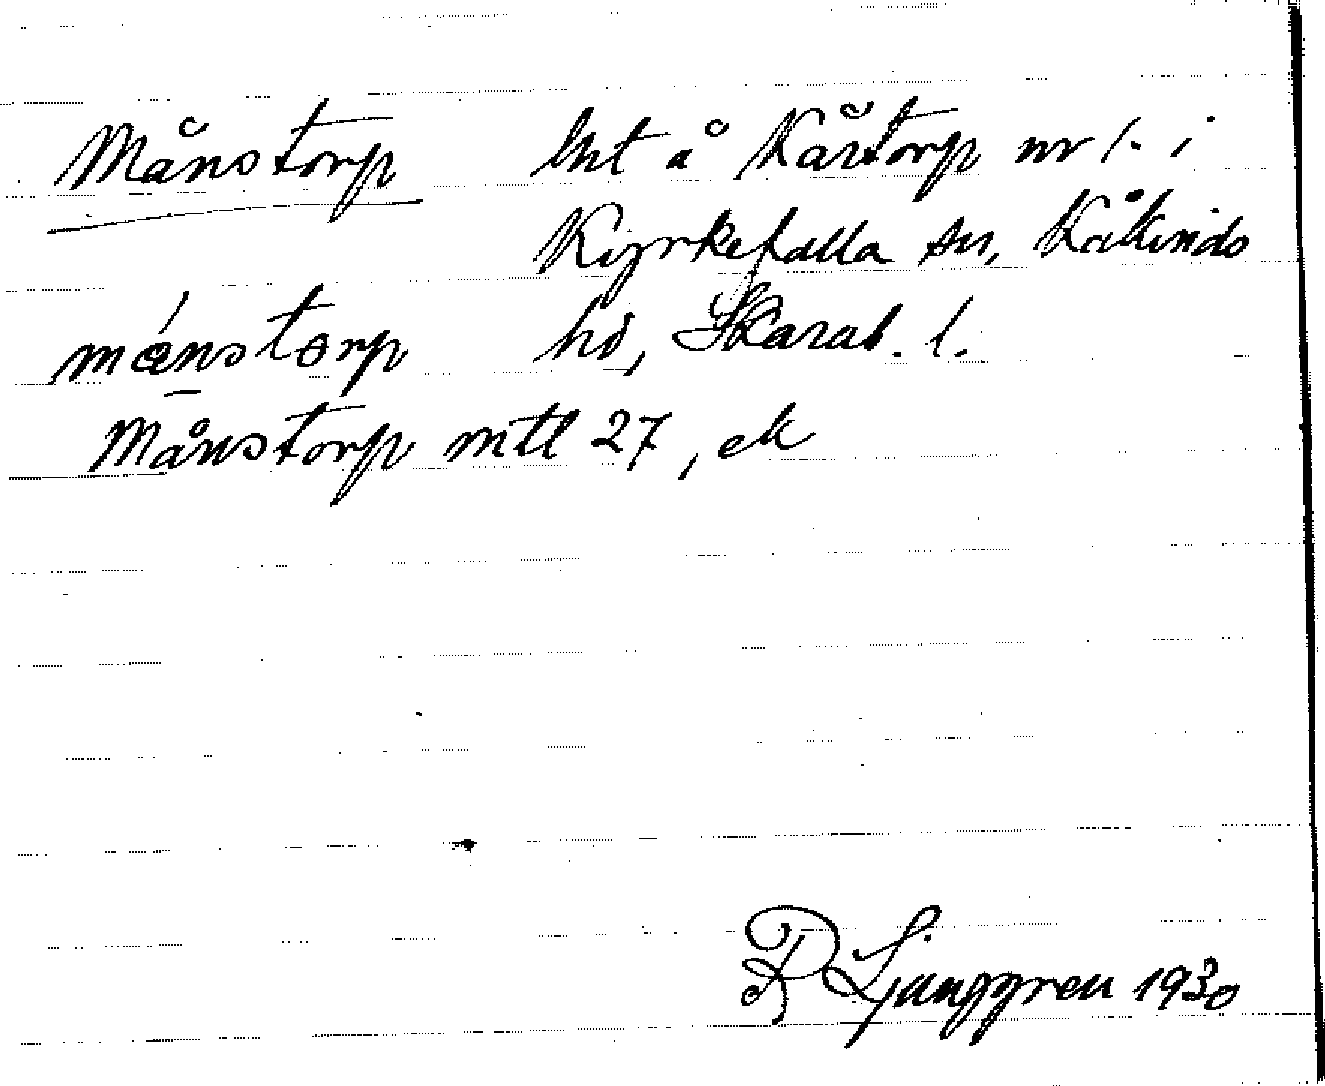 Månstorp lht å Kårstorp nr 1. i
Kyrkefalla sn, Kåkinds
månstɵrp hd, Skarab. l.
Månstorp mtl 27, ek
R Ljunggren 1930